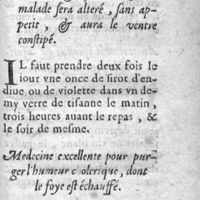 malade sera alteré, sans ap-
petit, & aura le ventre
constipé.
IL faut prendre deux fois le
iour vne once de sirot d'endi-
ue ou de violette dans vn de-
my verre de tisanne le matin,
trois heures auant le repas, &
le soir de mesme.
Medecine excellente pour pur-
ger l'humeur cholerique, dont
le foye est échauffé.